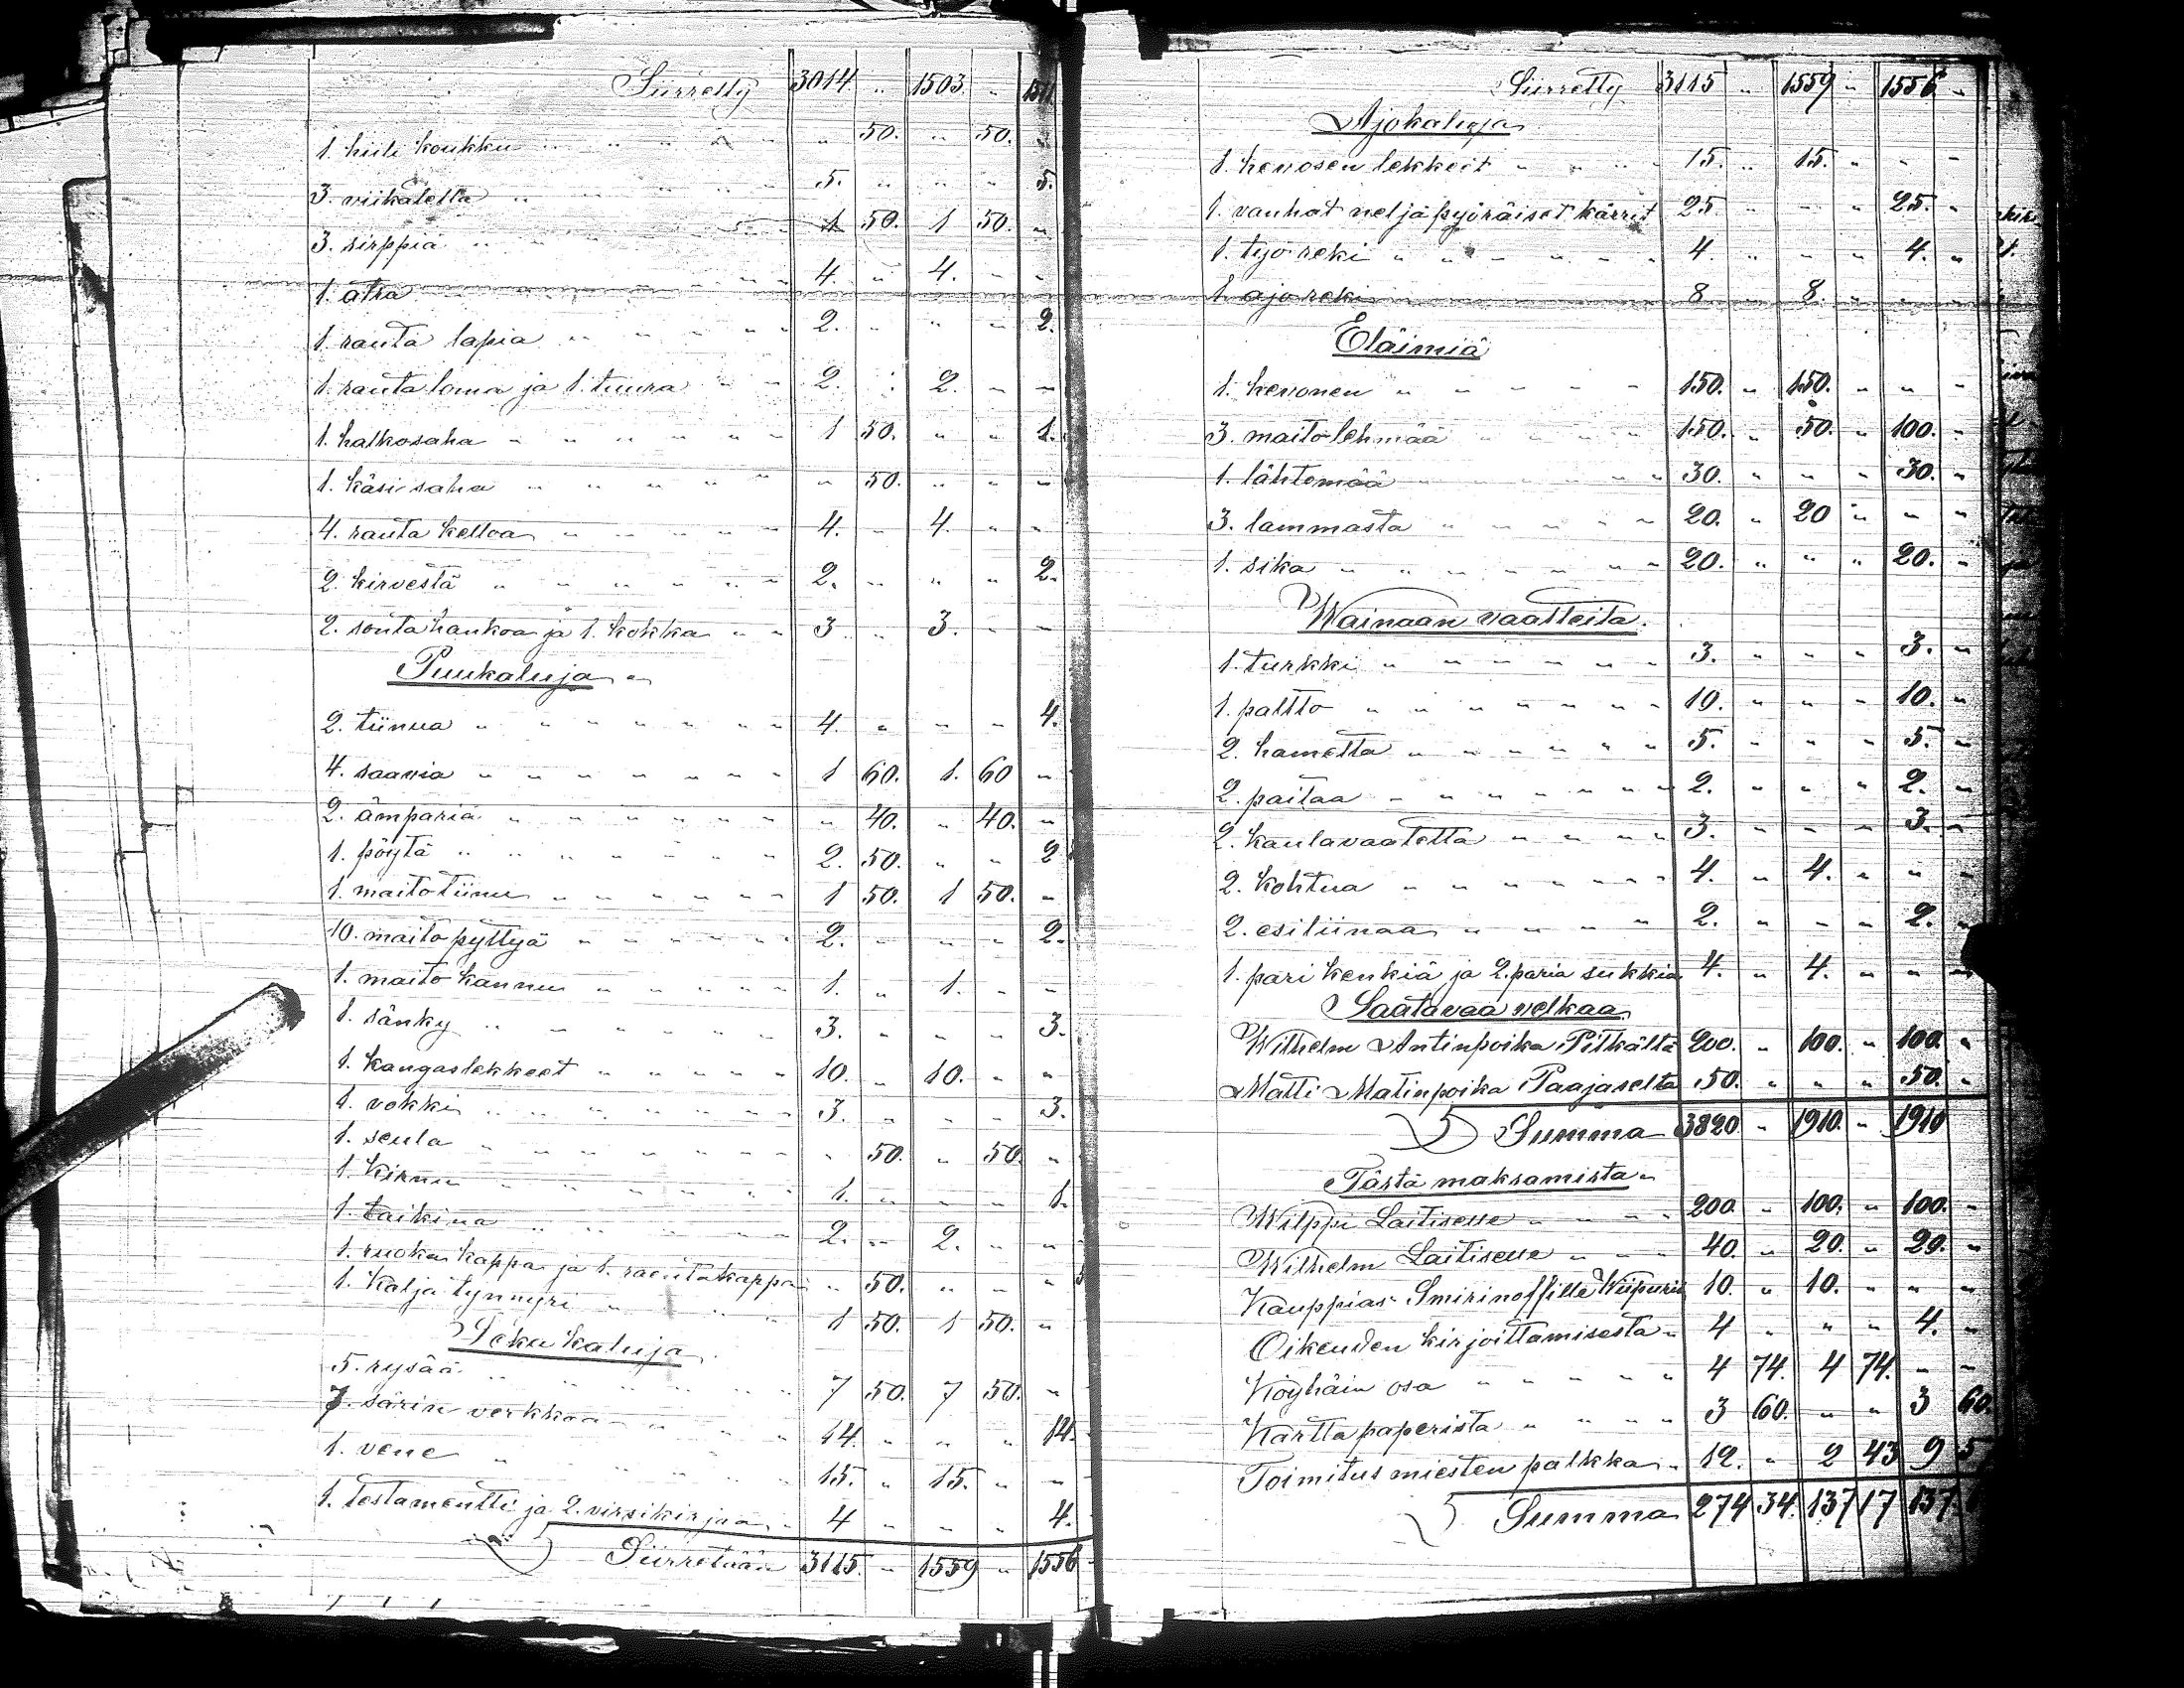 Siirretty 3014. „ 1503. „ 1511.
1. hiili koukku „ 50. „ 50. „
3. viikatetta 5. „ „ „ 5.
3. sirppiä 1 50. 1 50. „
1. atra 4. „ 4. „ „
1. rauta lapia 2. „ „ „ 2.
1. rauta loma ja 1. tuura 2. „ 2. „ „
1. halkosaha 1 50. „ „ 1.
1. käsi saha „ 50. „ „ „
4. rauta kelloa 4. „ 4. „ „
2. kirvestä 2. „ „ „ 2.
2. sontahankoa ja 1. kokka 3 „ 3. „ „
Puukaluja
2. tiinua 4. „ „ „ 4.
4. saavia 1 60. 1. 60 „
2. ämpäriä „ 40. „ 40. „
1. pöytä 2. 50. „ „ 2
1. maitotiinu 1 50. 1 50. „
10. maito pyttyä 2. „ „ „ 2.
1. maito kannu 1. „ 1. „ „
1. sänky 3. „ „ „ 3.
1. kangaslekkeet 10. „ 10. „ „
1. vokki 3. „ „ „ 3.
1. seula „ 50. „ 50. „
1. kirnu 1. „ „ „ 1.
1. taikina 2. „ 2. „ „
1. ruoka kappa ja 1. raentakappa „ 50. „ „ „
1. kalja tynnyri 1 50. 1 50. „
Sekakaluja
5. rysää 7 50. 7 50. „
7. särin verkkoa 14. „ „ „ 14.
1. vene 15. „ 15. „ „
1. testamentti ja 2. virsikirjaa 4 „ „ „ 4.
Siirretään 3115. „ 1559 „ 1556
Siirretty 3115 „ 1559 „ 1556 „
Ajokaluja
1. hevosen lekkeit 15. „ 15. „ „ „
1. vanhat neljäpyöräiset kärrit 25. „ „ „ 25. „
1. työ reki 4. „ „ „ 4. „
1. ajo reki 8 „ 8. „ „ „
Eläimiä
1. hevonen 150. „ 150. „ „ „
3. maito lehmää 150. „ 50. „ 100. „
1. lähtemää 30. „ „ „ 30. „
3. lammasta 20. „ 20 „ „ „
1. sika 20. „ „ „ 20. „
Wainaan vaatteita.
1. turkki 3. „ „ „ 3. „
1. paltto 10. „ „ „ 10. „
2. hametta 5. „ „ „ 5. „
2. paitaa 2. „ „ „ 2. „
2. kaulavaatetta 3. „ „ „ 3. „
2. kohtua 4. „ 4. „ „ „
2. esiliinaa 2. „ „ „ 2. „
1. pari kenkiä ja 2. paria sukkia 4. „ 4. „ „ „
Saatavaa velkaa
Wilhelm Antinpoika Pitkältä 200. „ 100. „ 100. „
Matti Matinpoika Paajaselta 50. „ „ „ 50. „
Summa 3820. „ 1910. „ 1910
Tästä maksamista
Wilppi Laitiselle 200. „ 100. „ 100. „
Wilhelm Laitiselle 40. „ 20. „ 20. „
Kauppias Smirinoffille Wiipuris 10. „ 10. „ „ „
Oikeuden kirjoittamisesta 4 „ „ „ 4. „
Köyhäin osa 4 74. 4 74. „ „
Kartta paperista 3 60. „ „ 3 60.
Toimitus miesten palkka 12. „ 2 43 9 5
Summa 274 34. 137 17 137.